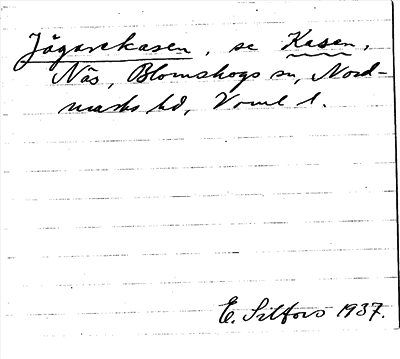 Jägarekasen, se Kasen,
Näs, Blomskogs sn, Nord-
marks hd, Vrml l.
E. Silfors 1937.